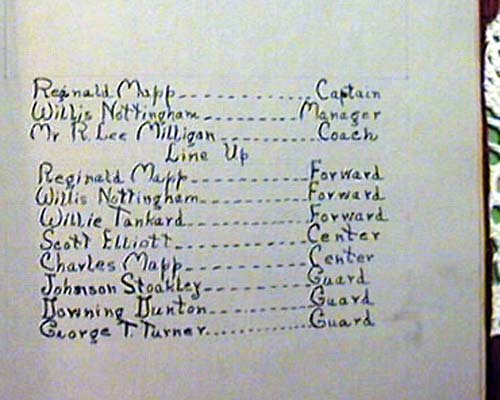 Reginald Mapp ............ Captain
Willis Nottingham ............ Manager
Mr R. Lee Milligan ............ Coach
Line Up
Reginald Mapp ............ Forward
Willis Nottingham ............ Forward
Willie Tankard ............ Forward
Scott Elliott ............ Center
Charles Mapp ............ Center
Johnson Stoakley ............ Guard
Downing Dunton ............ Guard
George T. Turner ............ Guard